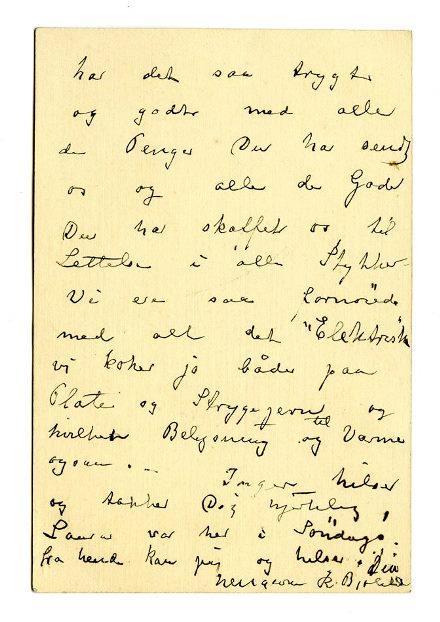 har det saa trygt
og godt med alle
de Penger Du har sendt
os og alle de Goder
Du har skaffet os til
Lettelse i alle Stykker.
Vi ere saa fornøiede
med alt det "Elektriske"
vi koker jo både paa
Plate og Strygejern og
Belysning og til Varme
ogsaa. — Inger hilser
og takker Dig hjertelig,
Laura var her i Söndags,
fra hende kan jeg og hilse. Din
hengivne K.